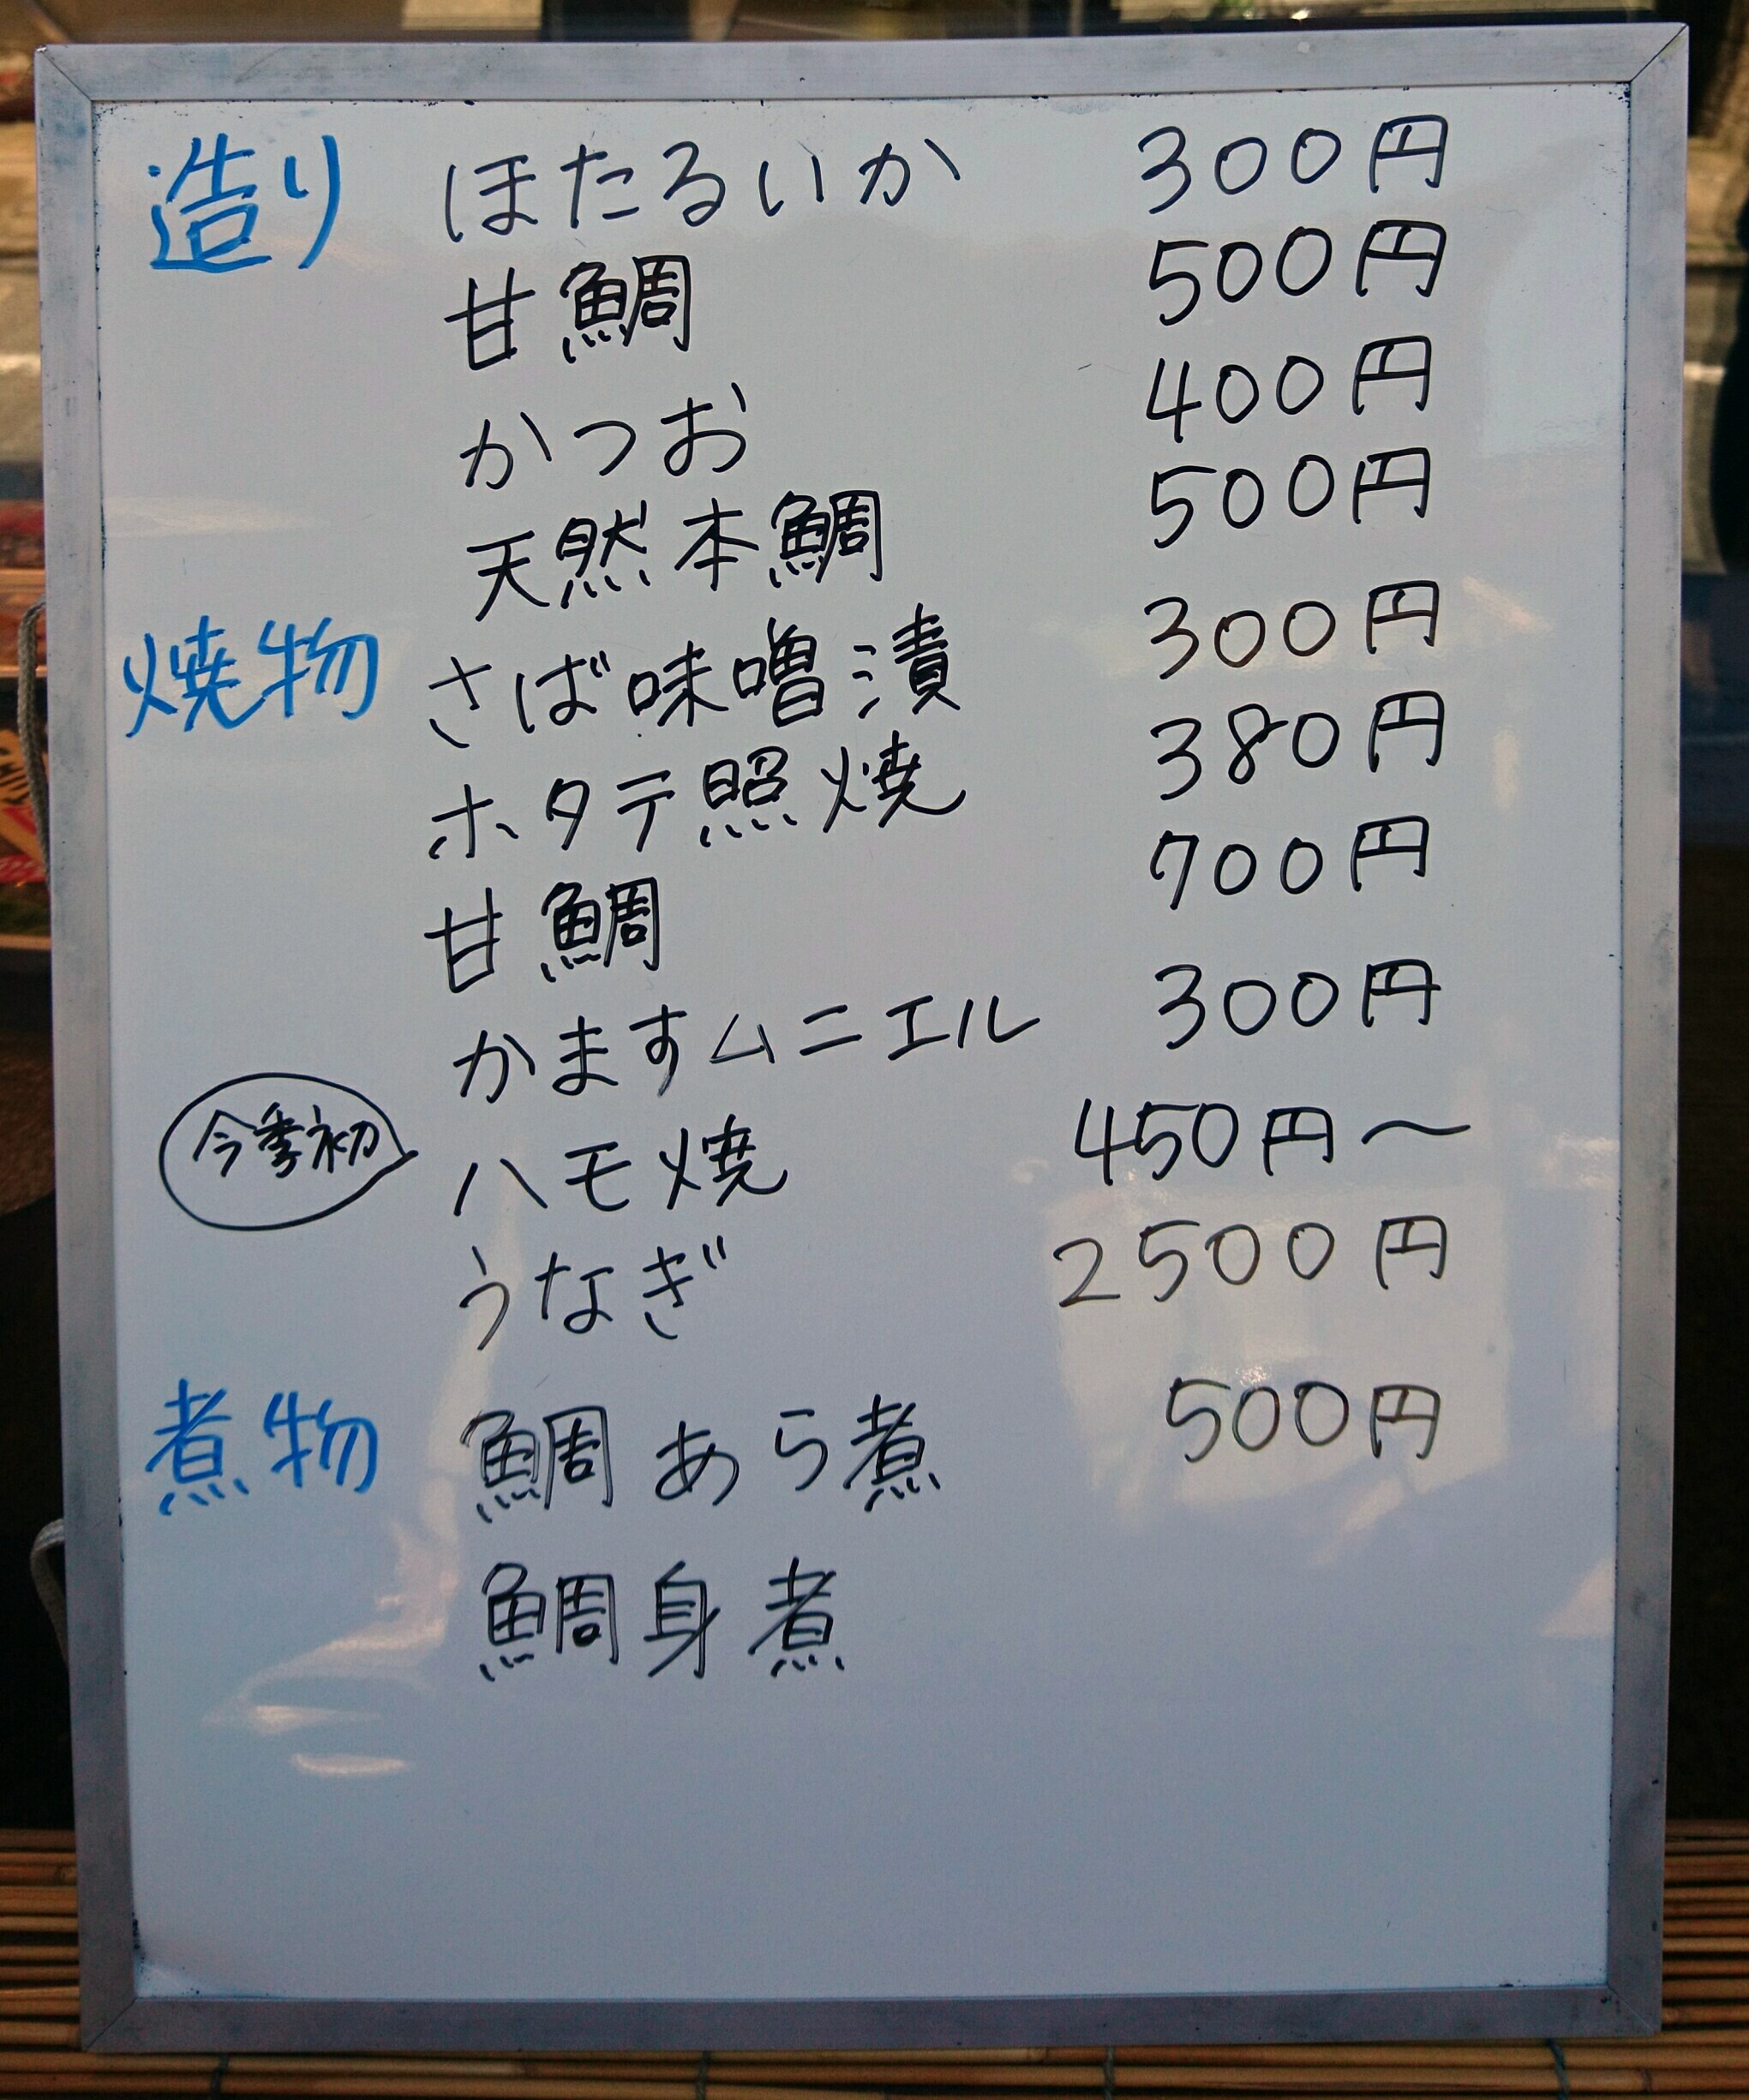 造り ほたるいか 300円
甘鯛 500円
かつお 400円
天然本鯛 500円
焼物 さば味噌漬 300円
ホタテ照焼 380円
甘鯛 700円
かますムニエル 300円
今季初 ハモ焼 450円〜
うなぎ 2500円
煮物 鯛あら煮 500円
鯛身煮